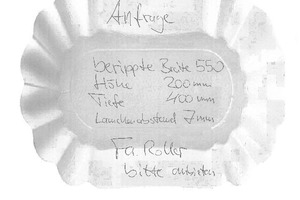 Anfrage
berippte Breite 550
Höhe 200 mm
Tiefe 400 mm
Lamellenabstand 7 mm
Fa. Roller
bitte